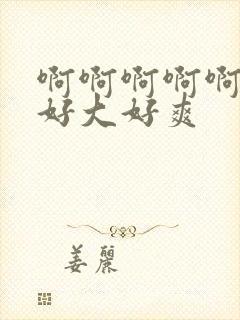 啊啊啊啊啊
好大好爽
姜麗